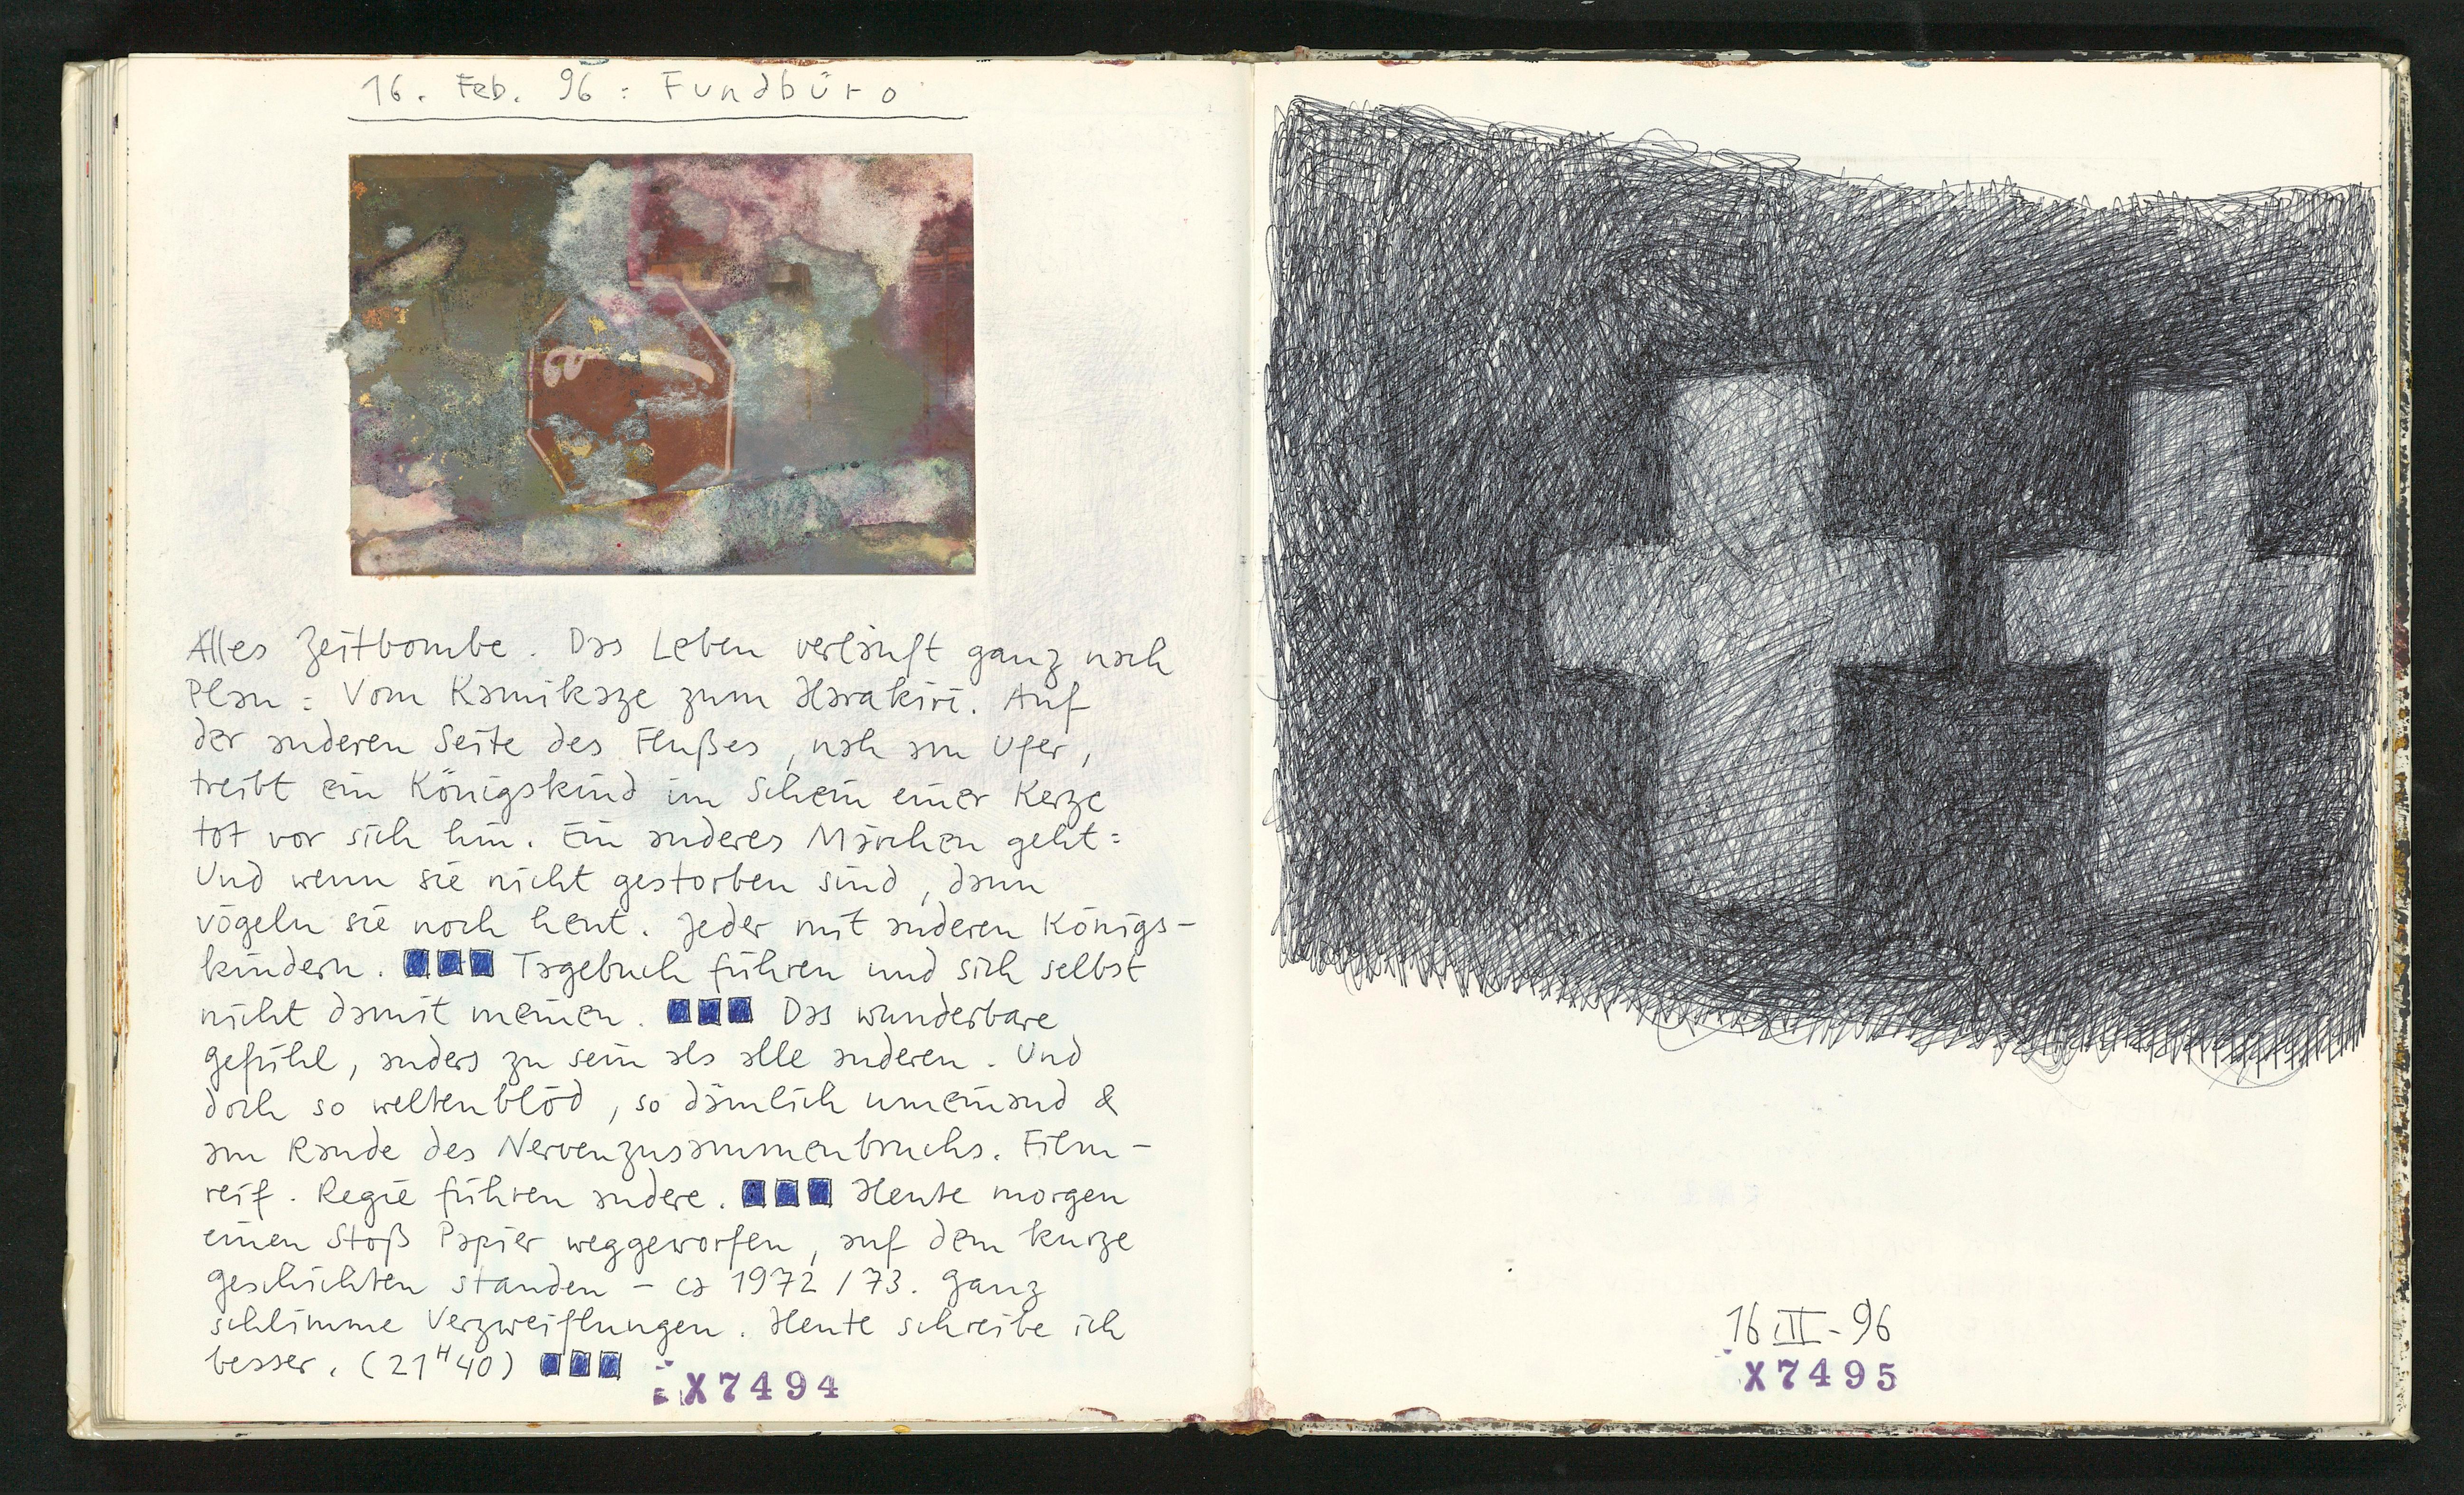 16. Feb. 96: Fundbüro
Alles Zeitbombe. Das Leben verläuft ganz nach
Plan: Vom Kamikaze zum Harakiri. Auf
der anderen Seite des Flußes, nah am Ufer,
treibt ein Königskind im Schein einer Kerze
tot vor sich hin. Ein anderes Märchen geht:
Und wenn sie nicht gestorben sind, dann
vögeln sie noch heut. Jeder mit anderen Königs-
kindern. ■■■ Tagebuch führen und sich selbst
nicht damit meinen. ■■■ Das wunderbare
Gefühl, anders zu sein als alle anderen. Und
doch so weltenblöd, so dämlich umeinand &
am Rande des Nervenzusammenbruchs. Film-
reif. Regie führen andere. ■■■ Heute morgen
einen Stoß Papier weggeworfen, auf dem kurze
Geschichten standen - ca 1972/73. Ganz
schlimme Verzweiflungen. Heute schreibe ich
besser. (21H40) ■■■
X7494
16 II - 96
X7495